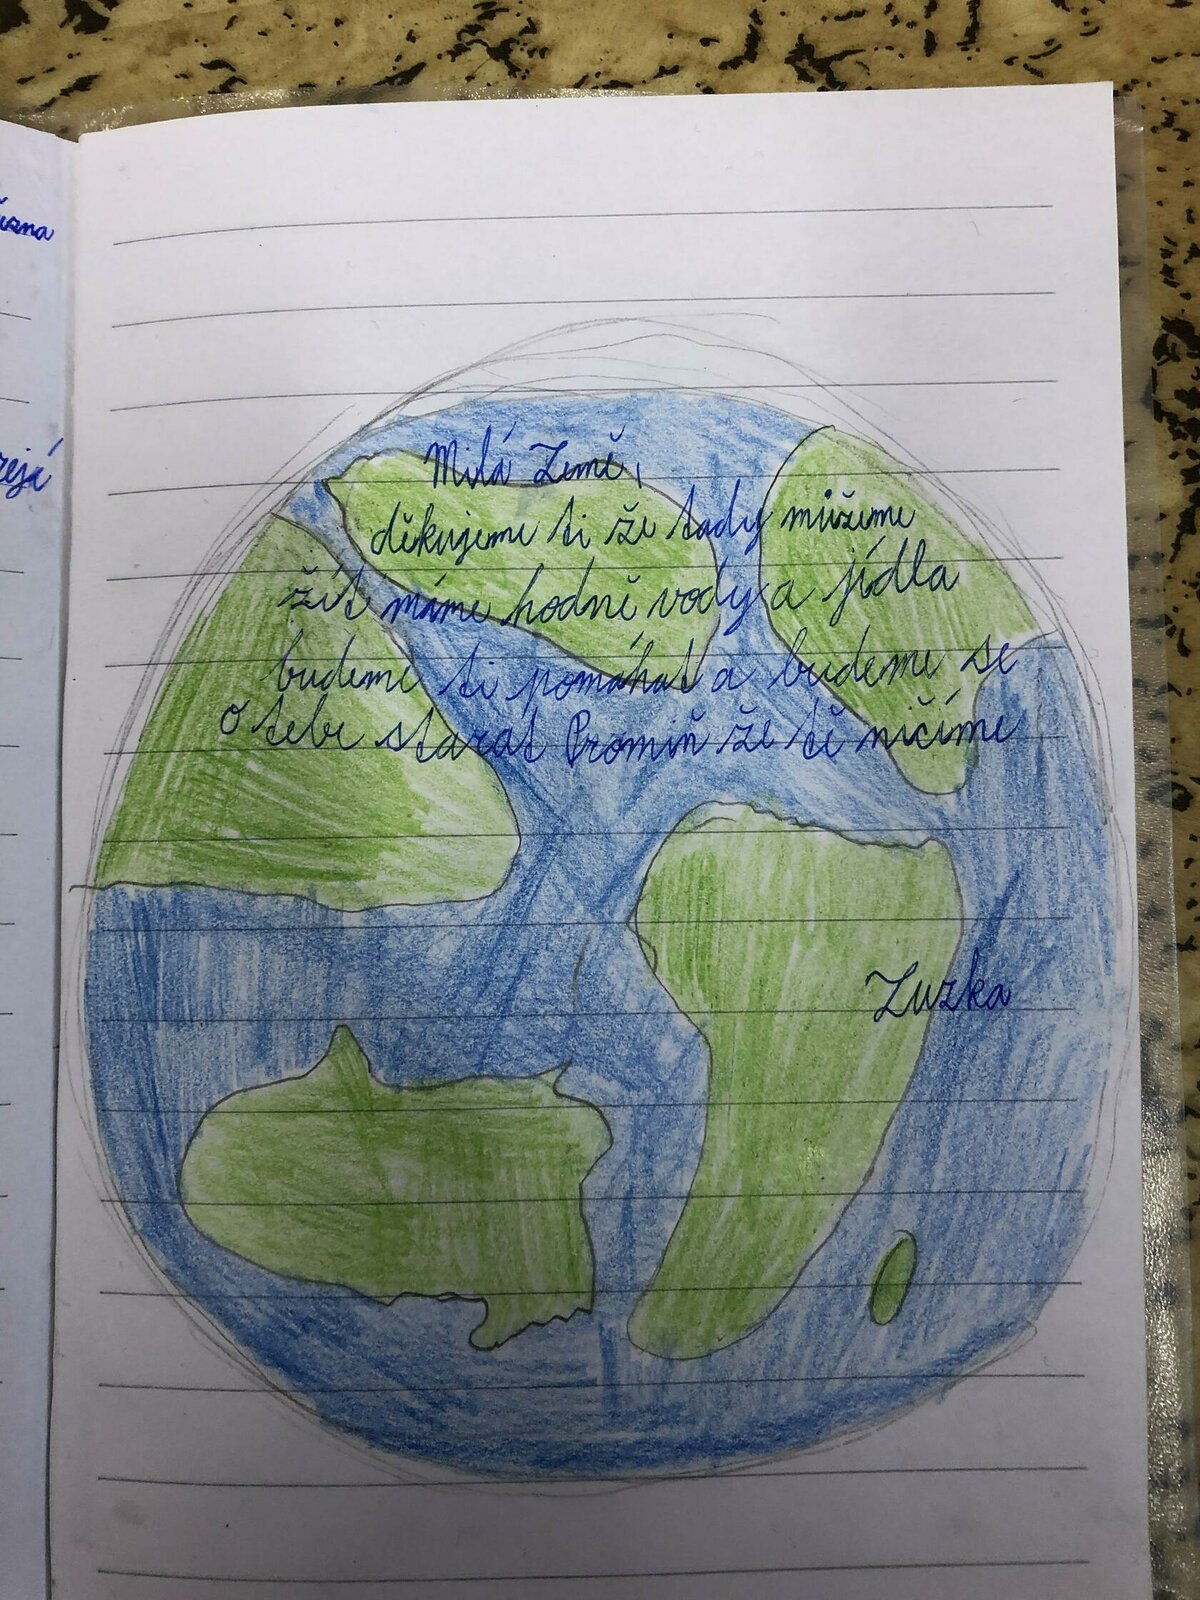 ízna
řejí
Milá Země,
děkujeme ti že tady můžeme
žít máme hodně vody a jídla
budeme ti pomáhat a budeme se
o tebe starat Promiň že tě ničíme
Zuzka